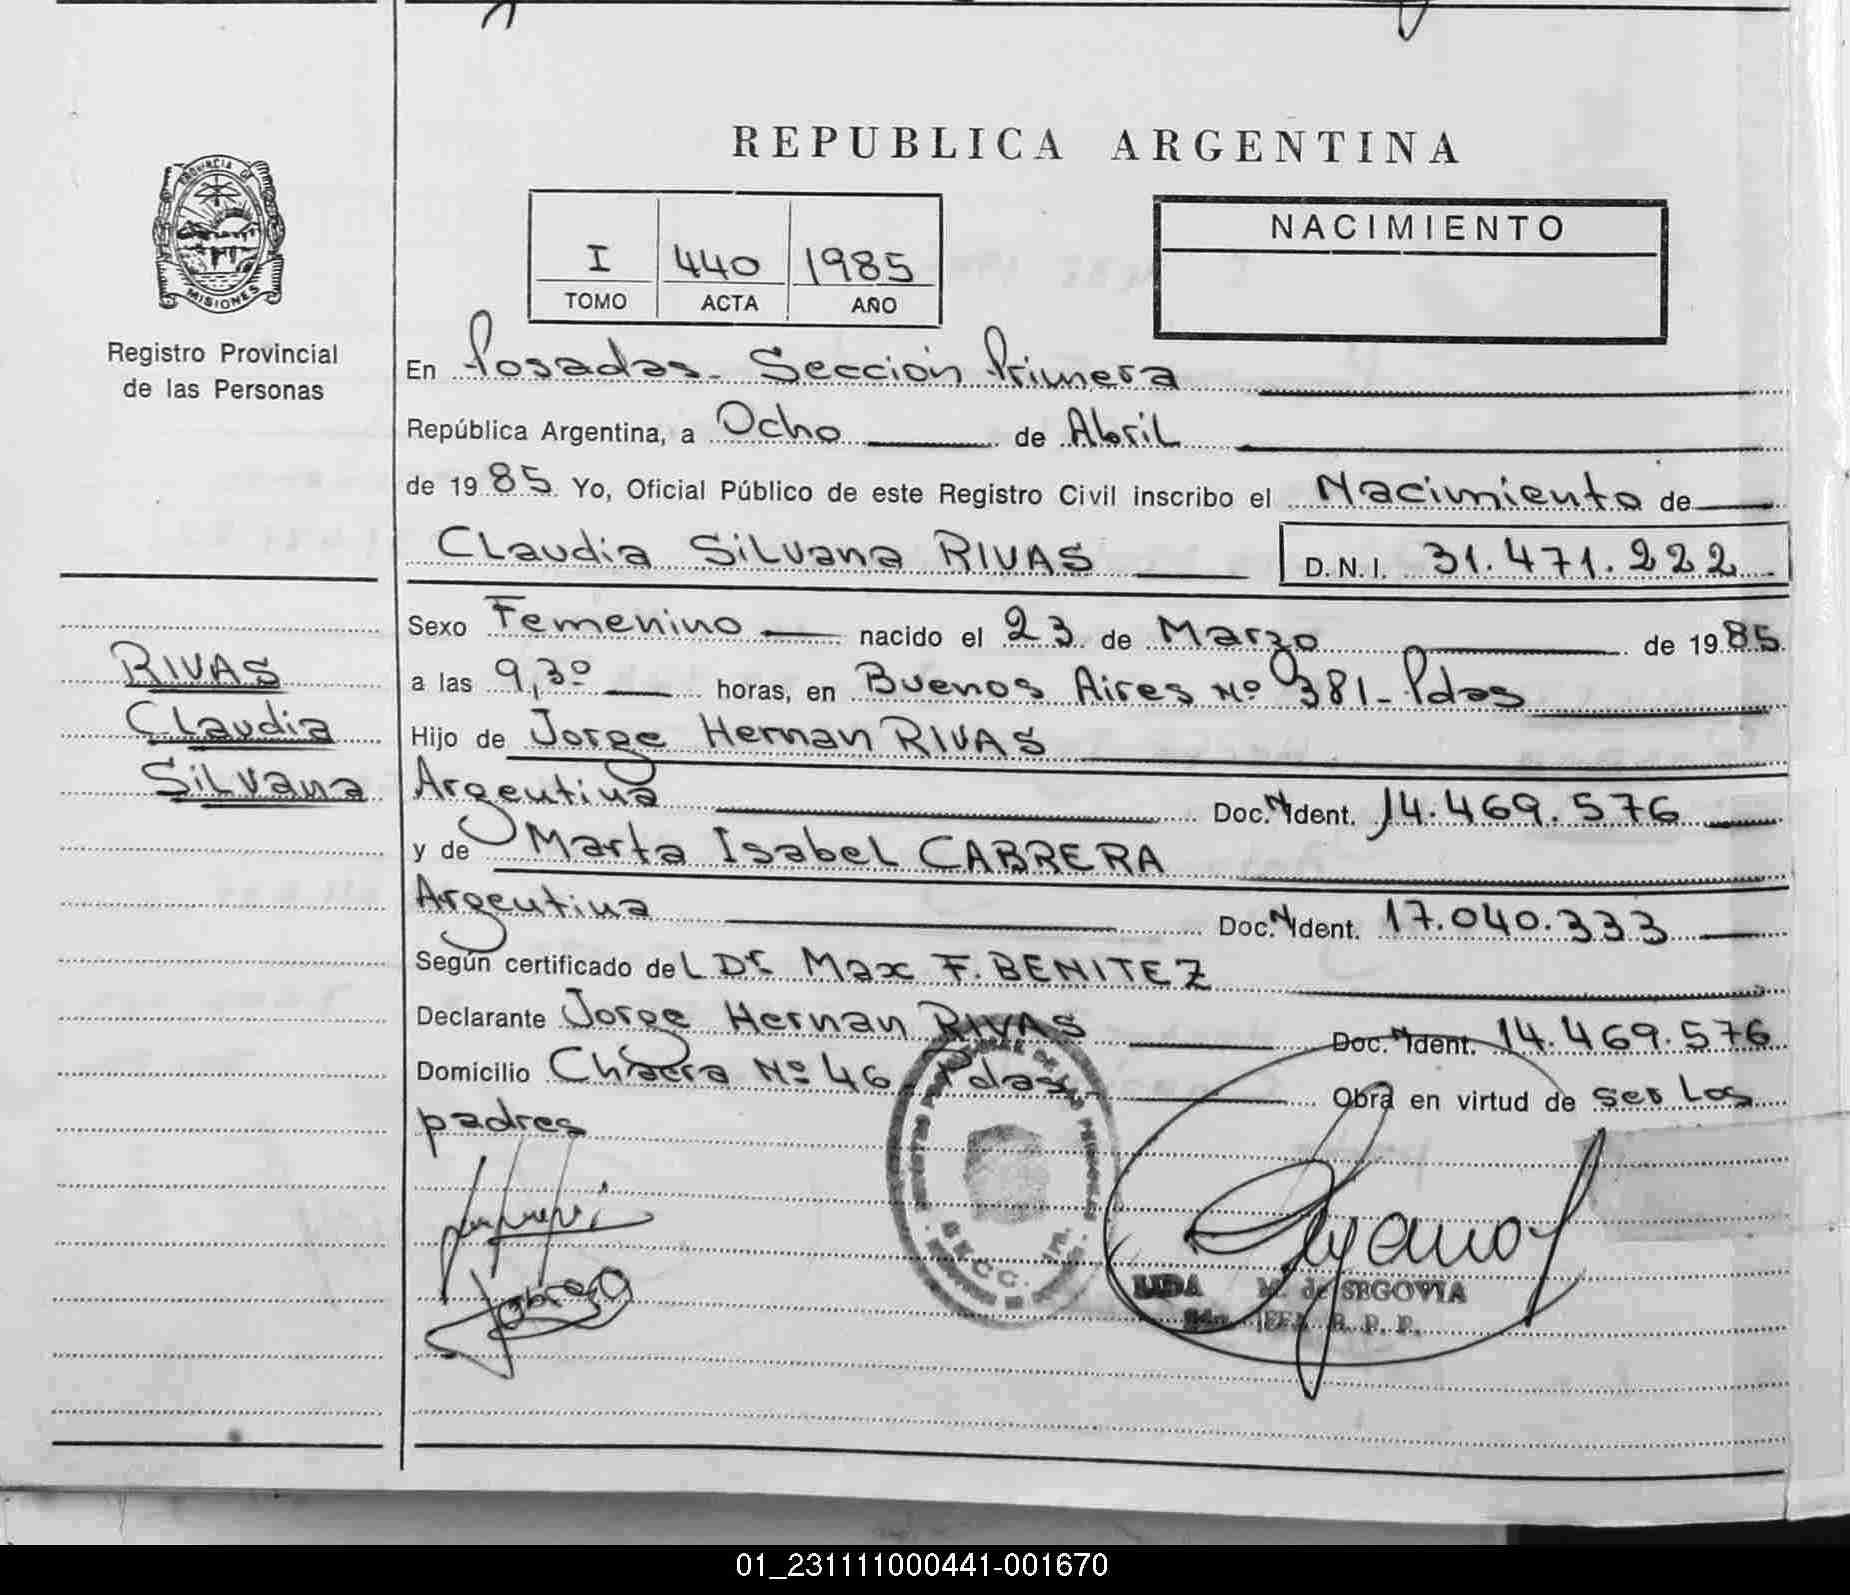 REPUBLICA ARGENTINA
PROVINCIA DE
MISIONES
Registro Provincial
de las Personas
I 440 1985
TOMO ACTA AÑO
NACIMIENTO
En Posadas. Sección Primera
República Argentina, a Ocho de Abril
de 1985. Yo, Oficial Público de este Registro Civil inscribo el Nacimiento de
Claudia Silvana RIVAS D.N.I. 31.471.222
Sexo Femenino nacido el 23 de Marzo de 1985.
a las 9,30 horas, en Buenos Aires Nº 381- Pdas
Hijo de Jorge Hernan RIVAS
Argentina Doc. N Ident. 14.469.576
y de Marta Isabel CABRERA
Argentina Doc. N Ident. 17.040.333
Según certificado del Dr. Max F. BENITEZ
Declarante Jorge Hernan RIVAS Doc. N Ident. 14.469.576
Domicilio Chacra Nº 46. Pdas. Obra en virtud de ser los
padres
RIVAS
Claudia
Silvana
LIDA M. de SEGOVIA
R. P. P.
01_231111000441-001670